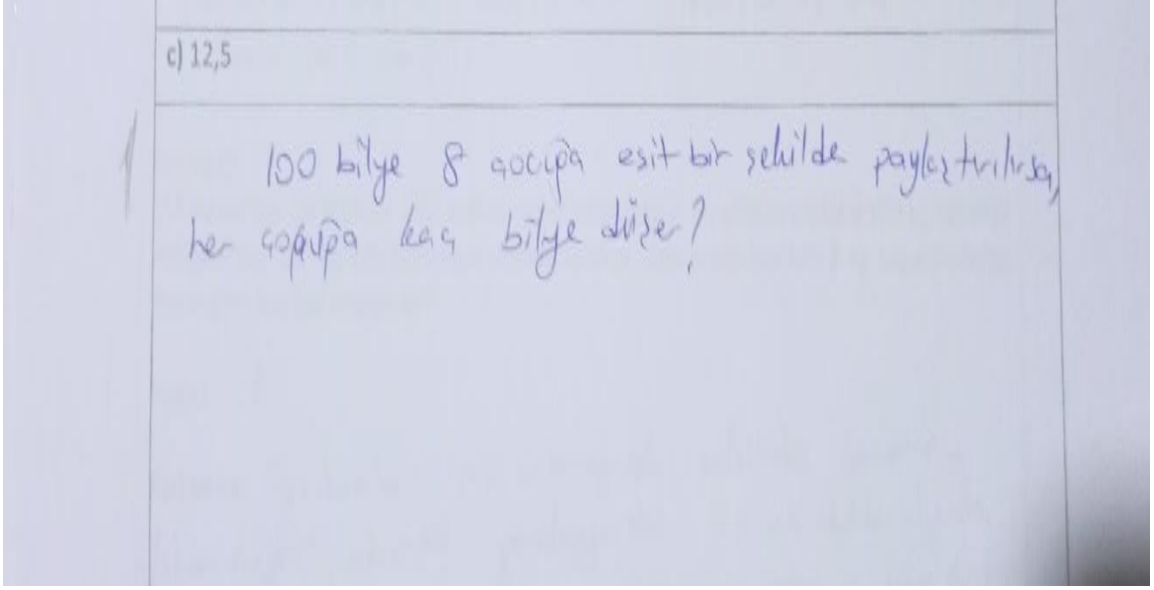 c) 12,5
100 bilye 8 çocuğa eşit bir şekilde paylaştırılırsa,
her çocuğa kaç bilye düşer?